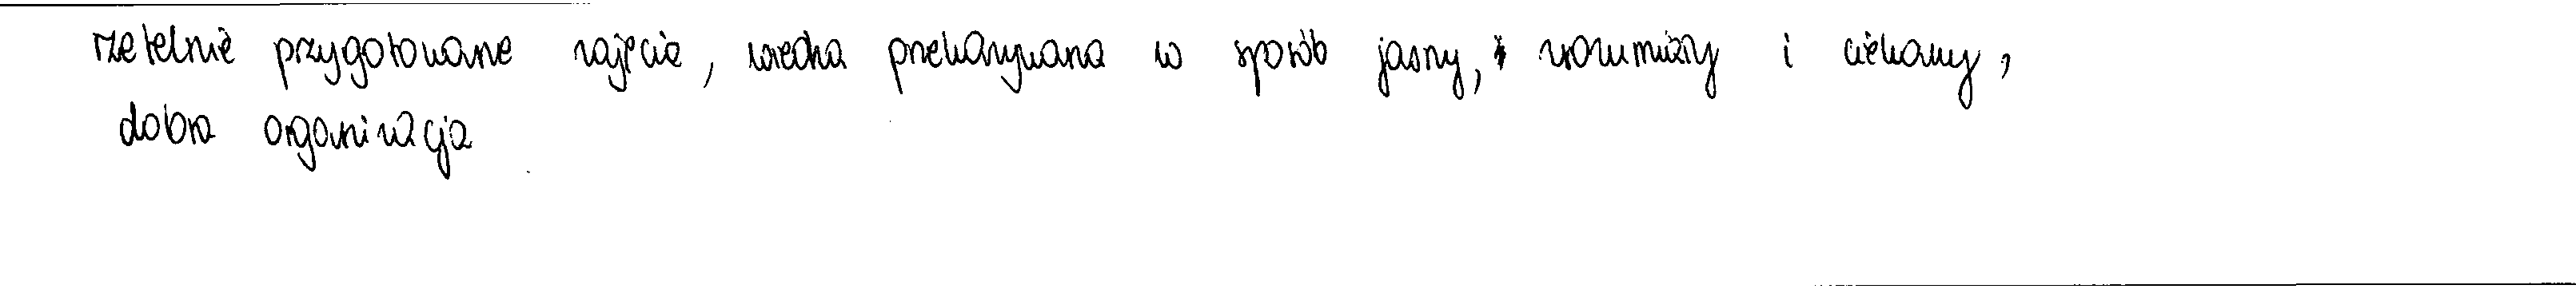 rzetelnie przygotowane zajęcia, wiedza przekazywana w sposób jasny, zrozumiały i ciekawy,
dobra organizacja